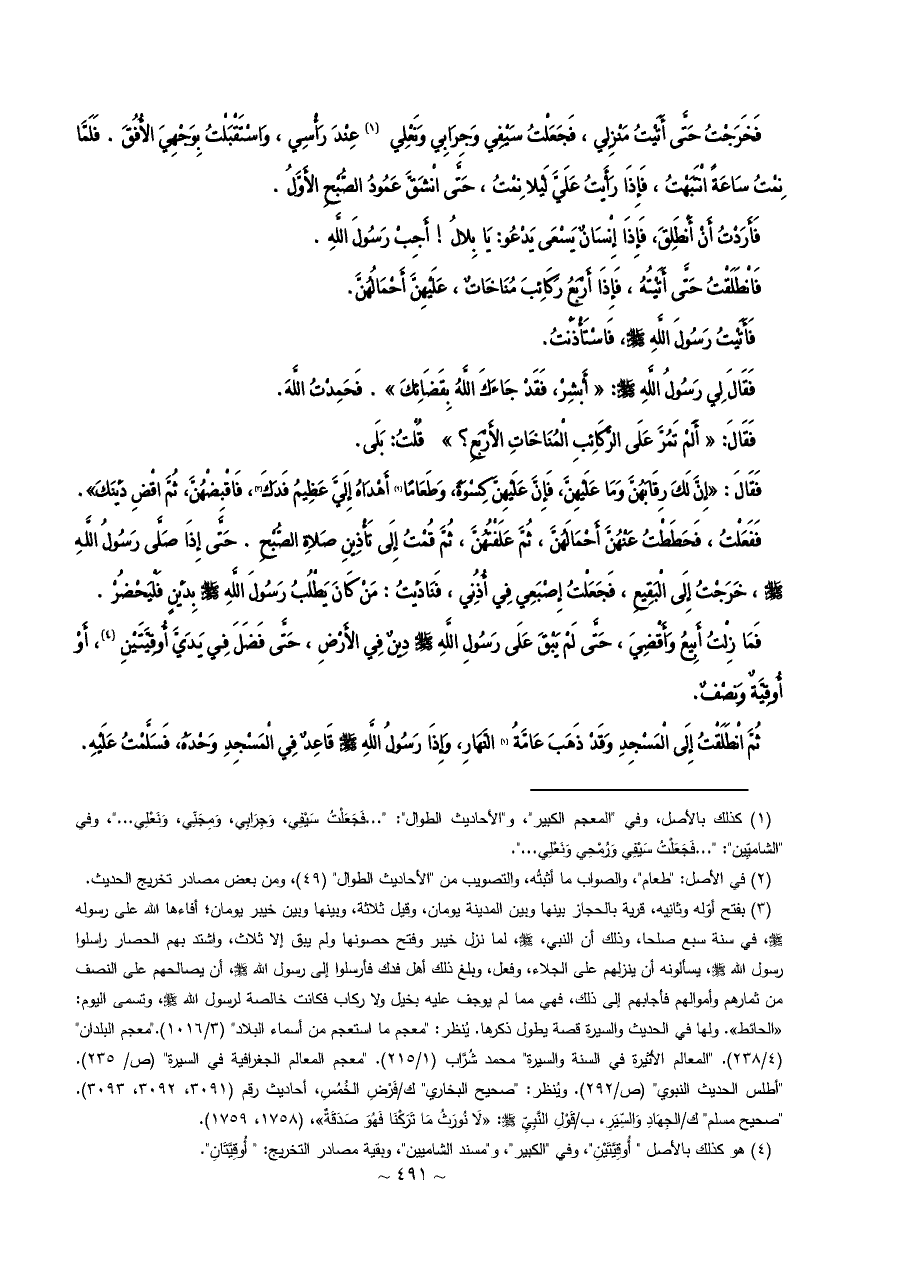 فَخَرَجْتُ حَتَّى أَتَيْتُ مَنْزِلِي ، فَجَعَلْتُ سَيْفِي وَجِرَابِي وَنَعْلِي (١) عِنْدَ رَأْسِي ، وَاسْتَقْبَلْتُ بِوَجْهِيَ الأُفُقَ . فَلَمَّا
نِمْتُ سَاعَةً انْتَبَهْتُ ، فَإِذَا رَأَيْتُ عَلَيَّ لَيْلا نِمْتُ ، حَتَّى انْشَقَّ عَمُودُ الصُّبْحِ الأَوَّلُ .
فَأَرَدْتُ أَنْ أَنْطَلِقَ، فَإِذَا إِنْسَانٌ يَسْعَى يَدْعُو: يَا بِلالُ ! أَجِبْ رَسُولَ اللَّهِ .
فَانْطَلَقْتُ حَتَّى أَتَيْتُهُ ، فَإِذَا أَرْبَعُ رَكَائِبَ مُنَاخَاتٌ ، عَلَيْهِنَّ أَحْمَالُهُنَّ.
فَأَتَيْتُ رَسُولَ اللَّهِ ﷺ، فَاسْتَأْذَنْتُ.
فَقَالَ لِي رَسُولُ اللَّهِ ﷺ: « أَبْشِرْ، فَقَدْ جَاءَكَ اللَّهُ بِقَضَائِكَ » . فَحَمِدْتُ اللَّهَ.
فَقَالَ: « أَلَمْ تَمُرَّ عَلَى الرَّكَائِبِ الْمُنَاخَاتِ الأَرْبَعِ؟ » قُلْتُ: بَلَى.
فَقَالَ : «إِنَّ لَكَ رِقَابَهُنَّ وَمَا عَلَيْهِنَّ، فَإِنَّ عَلَيْهِنَّ كِسْوَةً، وَطَعَامًا(٢) أَهْدَاهُ إِلَيَّ عَظِيمُ فَدَكَ(٣)، فَاقْبِضْهُنَّ، ثُمَّ اقْضِ دَيْنَكَ».
فَفَعَلْتُ ، فَحَطَطْتُ عَنْهُنَّ أَحْمَالَهُنَّ ، ثُمَّ عَلَفْتُهُنَّ ، ثُمَّ قُمْتُ إِلَى تَأْذِينِ صَلاةِ الصُّبْحِ . حَتَّى إِذَا صَلَّى رَسُولُ اللَّهِ
ﷺ ، خَرَجْتُ إِلَى الْبَقِيعِ ، فَجَعَلْتُ إِصْبَعِي فِي أُذُنِي ، فَنَادَيْتُ : مَنْ كَانَ يَطْلُبُ رَسُولَ اللَّهِ ﷺ بِدَيْنٍ فَلْيَحْضُرْ .
فَمَا زِلْتُ أَبِيعُ وَأَقْضِيَ ، حَتَّى لَمْ يَبْقَ عَلَى رَسُولِ اللَّهِ ﷺ دِينٌ فِي الأَرْضِ ، حَتَّى فَضَلَ فِي يَدَيَّ أُوقِيَّتَيْنِ (٤)، أَوْ
أُوقِيَّةٌ وَنِصْفٌ.
ثُمَّ انْطَلَقْتُ إِلَى الْمَسْجِدِ وَقَدْ ذَهَبَ عَامَّةُ النَّهَارِ، وَإِذَا رَسُولُ اللَّهِ ﷺ قَاعِدٌ فِي الْمَسْجِدِ وَحْدَهُ، فَسَلَّمْتُ عَلَيْهِ.
(١) كذلك بالأصل، وفي "المعجم الكبير"، و"الأحاديث الطوال": "...فَجَعَلْتُ سَيْفِي، وَجِرَابِي، وَمِجَنِّي، وَنَعْلِي..."، وفي
"الشاميّين": "...فَجَعَلْتُ سَيْفِي وَرُمْحِي وَنَعْلِي...".
(٢) في الأصل: "طعام"، والصواب ما أثبتُه، والتصويب من "الأحاديث الطوال" (٤٩)، ومن بعض مصادر تخريج الحديث.
(٣) بفتح أوّله وثانيه، قرية بالحجاز بينها وبين المدينة يومان، وقيل ثلاثة، وبينها وبين خيبر يومان؛ أفاءها الله على رسوله
ﷺ، في سنة سبع صلحا، وذلك أن النبي، ﷺ، لما نزل خيبر وفتح حصونها ولم يبق إلا ثلاث، واشتد بهم الحصار راسلوا
رسول الله ﷺ، يسألونه أن ينزلهم على الجلاء، وفعل، وبلغ ذلك أهل فدك فأرسلوا إلى رسول الله ﷺ، أن يصالحهم على النصف
من ثمارهم وأموالهم فأجابهم إلى ذلك، فهي مما لم يوجف عليه بخيل ولا ركاب فكانت خالصة لرسول الله ﷺ، وتسمى اليوم:
«الحائط». ولها في الحديث والسيرة قصة يطول ذكرها. يُنظر: "معجم ما استعجم من أسماء البلاد" (١٠١٦/٣)."معجم البلدان"
(٢٣٨/٤). "المعالم الأثيرة في السنة والسيرة" محمد شُرَّاب (٢١٥/١). "معجم المعالم الجغرافية في السيرة" (ص/ ٢٣٥).
"أطلس الحديث النبوي" (ص/٢٩٢). ويُنظر: "صحيح البخاري" ك/فَرْضِ الخُمُسِ، أحاديث رقم (٣٠٩١، ٣٠٩٢، ٣٠٩٣).
"صحيح مسلم" ك/الجِهَادِ وَالسِّيَرِ، ب/قَوْلِ النَّبِيِّ ﷺ: «لَا نُورَثُ مَا تَرَكْنَا فَهُوَ صَدَقَةٌ»، (١٧٥٨، ١٧٥٩).
(٤) هو كذلك بالأصل " أُوقِيَّتَيْنِ"، وفي "الكبير"، و"مسند الشاميين"، وبقية مصادر التخريج: " أُوقِيَّتَانِ".
~ ٤٩١ ~